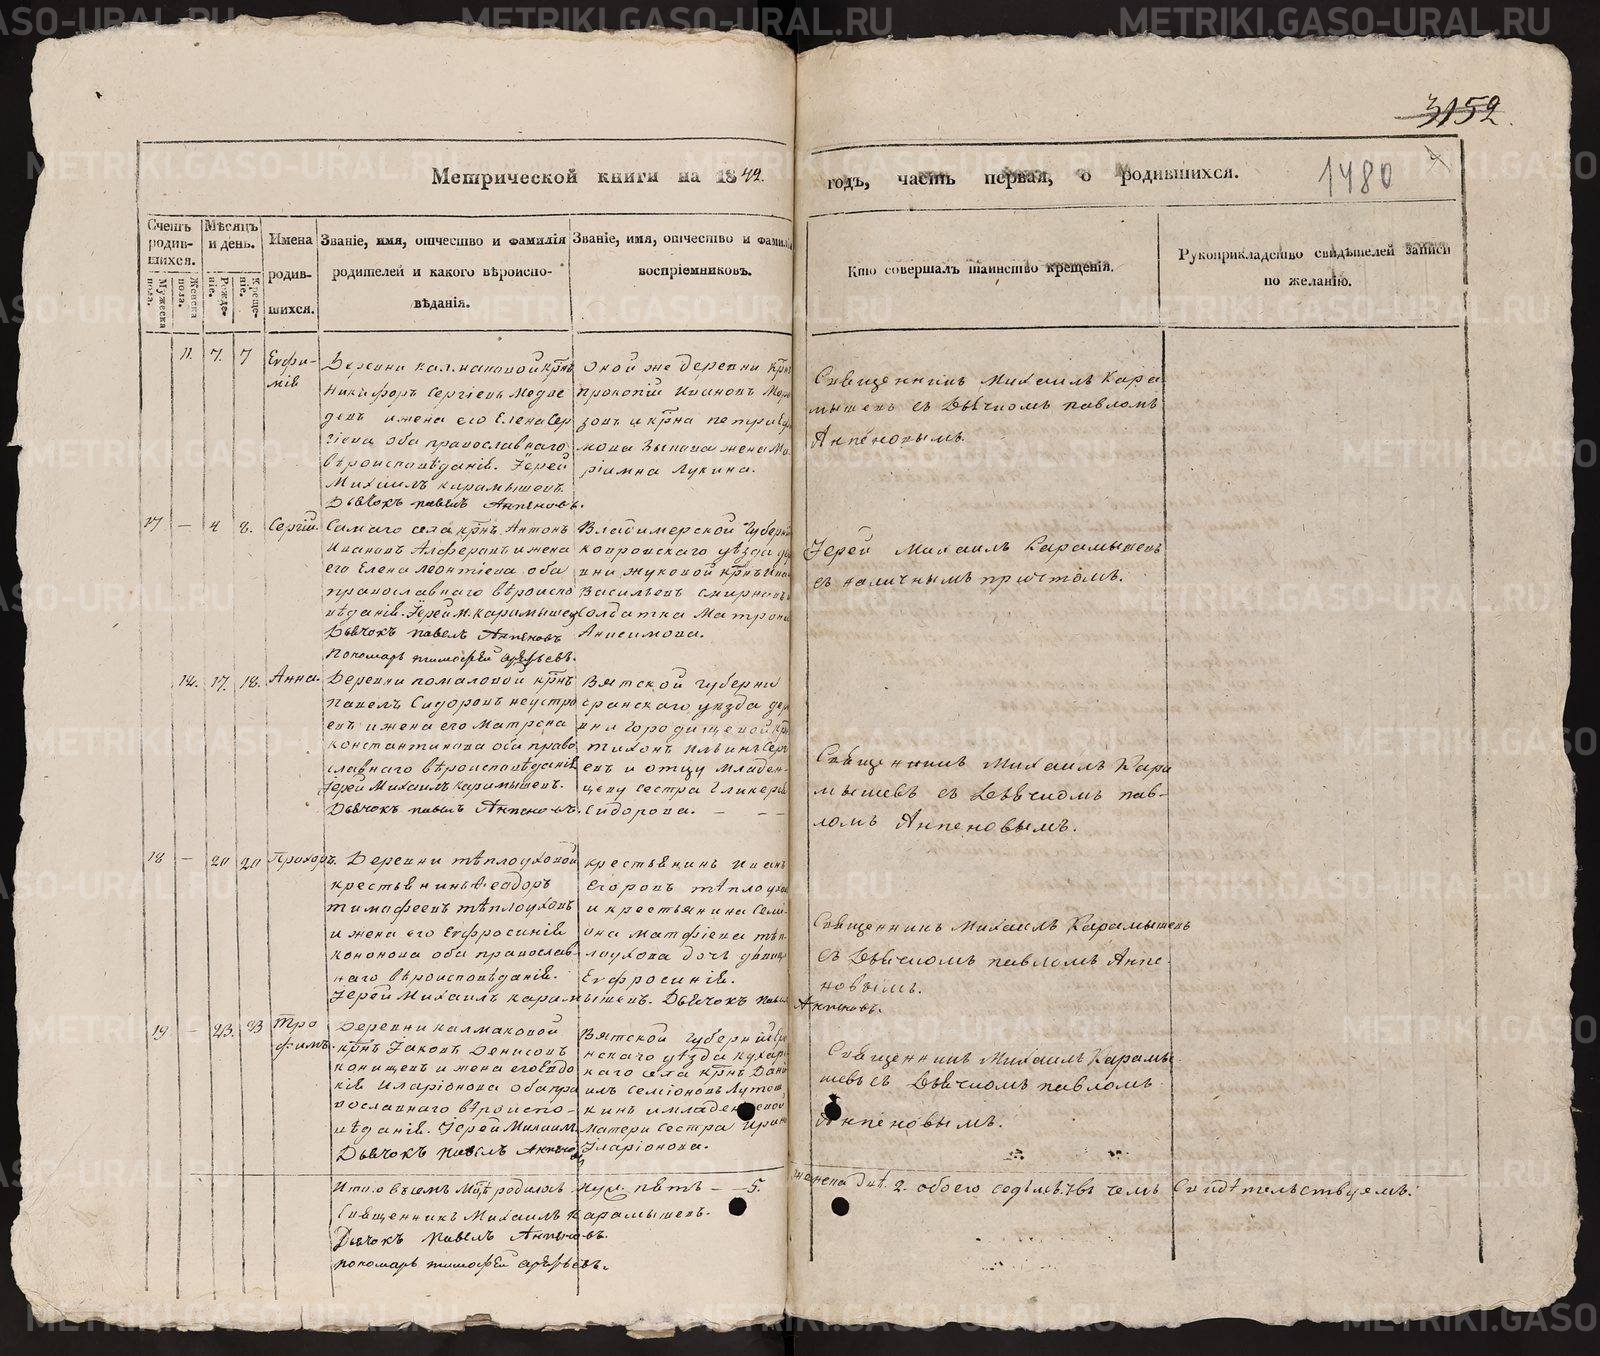 3152.
1480
Метрической книги на 1842. годъ, часть первая, о родившихся.
Счетъ родившихся.
Мужеска пола.
Женска пола.
Мѣсяцъ и день.
Рожденіе.
Крещеніе.
Имена родившихся.
Званіе, имя, отчество и фамилія
родителей и какого вѣроиспо-
вѣданія.
Званіе, имя, отчество и фамилія
воспріемниковъ.
Кто совершалъ таинство крещенія.
Рукоприкладство свидѣтелей записи
по желанію.
11. 7. 7
Евфи-
мія
Деревни калмаковой крнъ
Никифоръ Сергіевъ Медве
девъ и жена его Елена Сер
гіева оба православнаго
вѣроисповѣданія. Іерей
Михаилъ Карамышевъ
Дьячокъ павелъ
оной же деревни крнъ
прокопій Ивановъ Моро
зовъ и крна петра
мова Зыкова жена Ма
ріамна Лукина.
Священникъ Михаилъ Кара
мышевъ съ Дьячкомъ павломъ
17 — 4 8.
Сергій.
Самаго села крнъ Антонъ
Ивановъ Алферовъ и жена
его Елена Леонтіева оба
православнаго вѣроиспо
вѣданія. Іерей М. Карамышевъ
Дьячокъ павелъ
Пономарь тимофей
Владимерской Губерніи
ковровскаго уѣзда де
вни жуковой крнъ
Васильевъ Смирновъ
Солдатка Матрона
Анисимова.
Іерей Михаилъ Карамышевъ
съ наличнымъ причтомъ.
12. 17. 18.
Анна.
Деревни помаловой крнъ
павелъ Сидоровъ неустро
евъ и жена его Матрона
константинова оба право
славнаго вѣроисповѣданія
Іерей Михаилъ Карамышевъ.
Дьячокъ павелъ
Вятской губерніи
уѣзда дер
вни городищевой кр
тихонъ Ильинъ Серг
евъ и отцу младен-
цеву сестра Гликерія
Сидорова. — — —
Священникъ Михаилъ Кара
мышевъ съ Дьячкомъ пав-
ломъ
18 — 20 20
Прохоръ.
Деревни тѣплоуховой
крестьянинъ Ѳеодоръ
тимофеевъ тѣплоуховъ
и жена его Евфросинія
кононова оба православ-
наго вѣроисповѣданія.
Іерей Михаилъ Карамышевъ. Дьячокъ павелъ
крестьянинъ Иванъ
Егоровъ тѣплоухо
и крестьянина Семі-
она матфіева тѣп-
лоухова дочь дѣвица
Евфросинія.
Священникъ Михаилъ Карамышевъ
съ Дьячкомъ павломъ
19 — 23. 23
Тро
фимъ.
Деревни калмаковой
крнъ Іаковъ Денисовъ
конищевъ и жена его Евдо
кія Иларіонова оба пра
вославнаго вѣроиспо-
вѣданія. Іерей Михаилъ
Дьячокъ павелъ
Вятской губерніи
нскаго уѣзда кукар
каго села крнъ Дані
илъ Семіоновъ
кинъ и младенцевой
матери сестра Ирина
Іларіонова.
Священникъ Михаилъ Карамы
шевъ съ Дьячкомъ павломъ
Итого всемъ Мцѣ родилось муж. пять — 5. женска двѣ. 2. обоего седьмь. 7. въ чемъ Свидѣтельствуемъ:
Священникъ Михаилъ Карамышевъ.
Дьячокъ Павелъ
пономарь тимофей